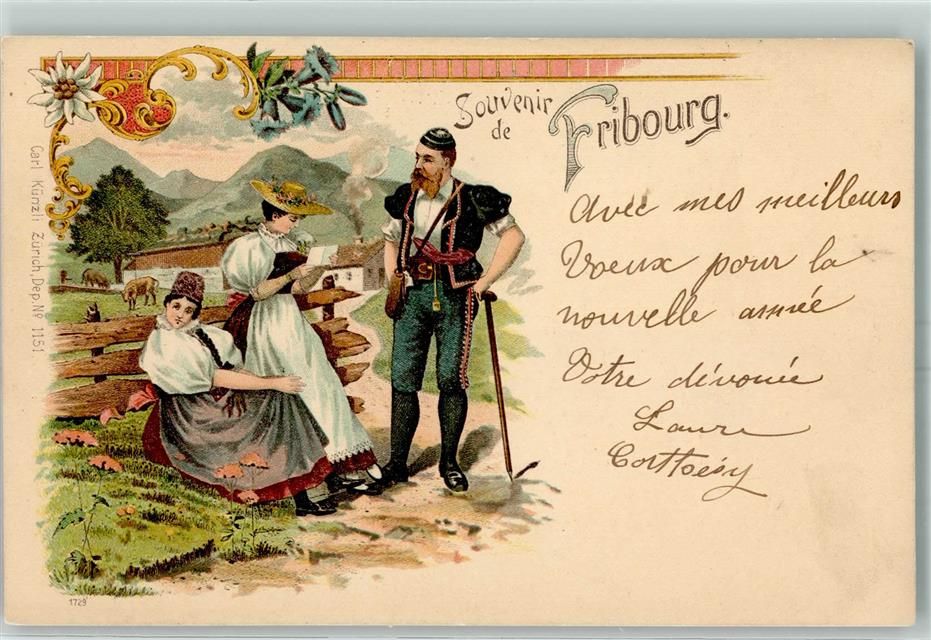 Souvenir
de Fribourg.
Avec mes meilleurs
Voeux pour la
nouvelle année
Votre dévouée
Laure
Carl Künzli Zürich, Dep. Nº 1151
1729